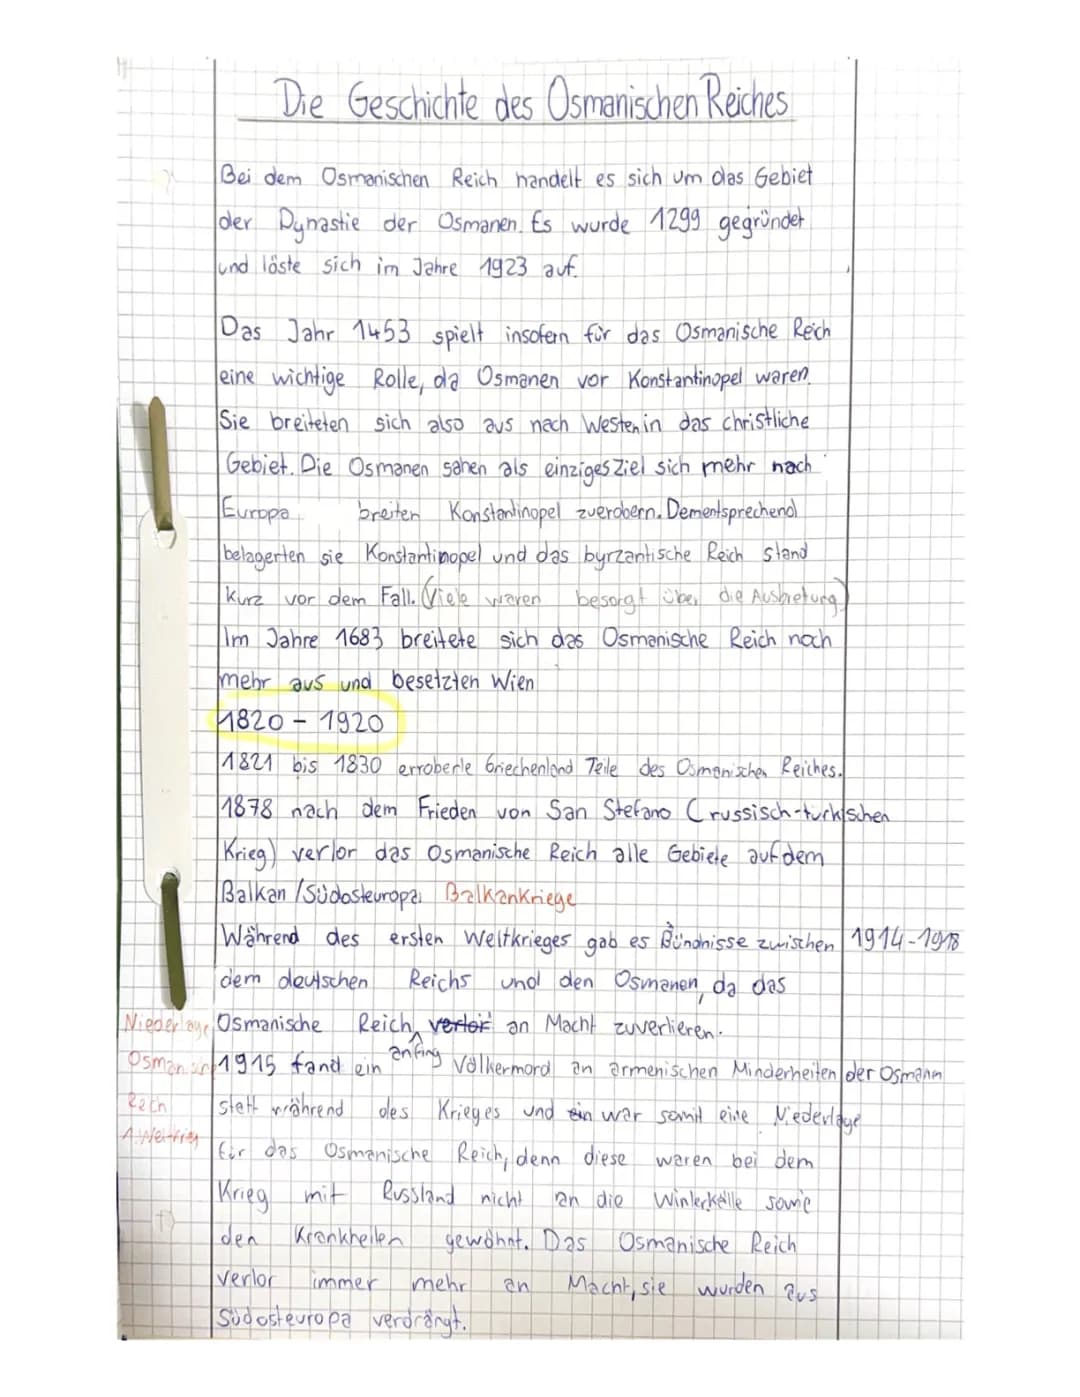 Die Geschichte des Osmanischen Reiches
Bei dem Osmanischen Reich handelt es sich um das Gebiet
der Dynastie der Osmanen. Es wurde 1299 gegründet
und löste sich im Jahre 1923 auf.
Das Jahr 1453 spielt insofern für das Osmanische Reich
eine wichtige Rolle, da Osmanen vor Konstantinopel waren.
Sie breiteten sich also aus nach Westen in das christliche
Gebiet. Die Osmanen sahen als einziges Ziel sich mehr nach
Europa breiten Konstantinopel zuerobern. Dementsprechend
belagerten sie Konstantinopel und das byrzantische Reich stand
kurz vor dem Fall. (Viele waren besorgt über die Ausbreitung)
Im Jahre 1683 breitete sich das Osmanische Reich noch
mehr aus und besetzten Wien
1820 - 1920
1821 bis 1830 erroberte Griechenland Teile des Osmanischen Reiches.
1878 nach dem Frieden von San Stefano (russisch-türkischen
Krieg) verlor das Osmanische Reich alle Gebiete auf dem
Balkan / Südosteuropa. Balkankriege
Während des ersten Weltkrieges gab es Bündnisse zwischen 1914-1918
dem deutschen Reichs und den Osmanen, da das
Niederlage Osmanische Reich verlor anfing an Macht zuverlieren.
Osmanisch 1915 fand ein Völkermord an armenischen Minderheiten der Osmann
Reich statt während des Krieges und ein war somit eine Niederlage
1. Weltkrieg für das Osmanische Reich, denn diese waren bei dem
Krieg mit Russland nicht an die Winterkälte sowie
den Krankheiten gewöhnt. Das Osmanische Reich
verlor immer mehr an Macht, sie wurden aus
Südosteuropa verdrängt.